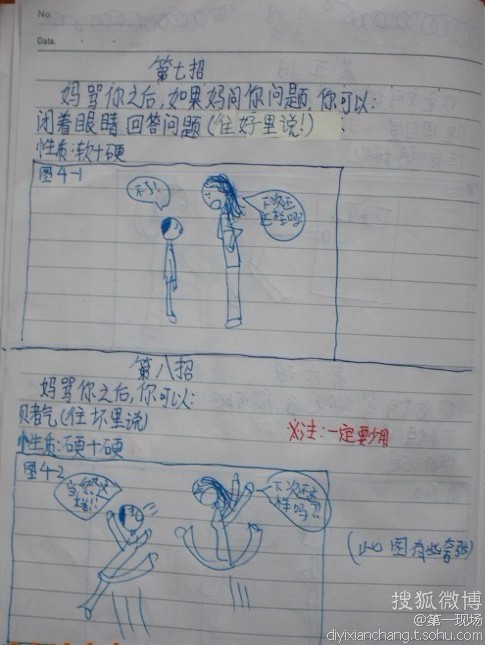 No.
Date.
第七招
妈骂你之后,如果妈问你问题,你可以:
闭着眼睛回答问题(住好里说!)
性质:软+硬
图4-1
不了!
下次还
这样吗
第八招
妈骂你之后,你可以:
赌气(住坏里说)
※注:一定要少用
性质:硬+硬
图4-2
当然这
样!!
下次还这
样吗?!
(此图有些夸张)
搜狐微博
@第一现场
diyixianchang.t.sohu.com